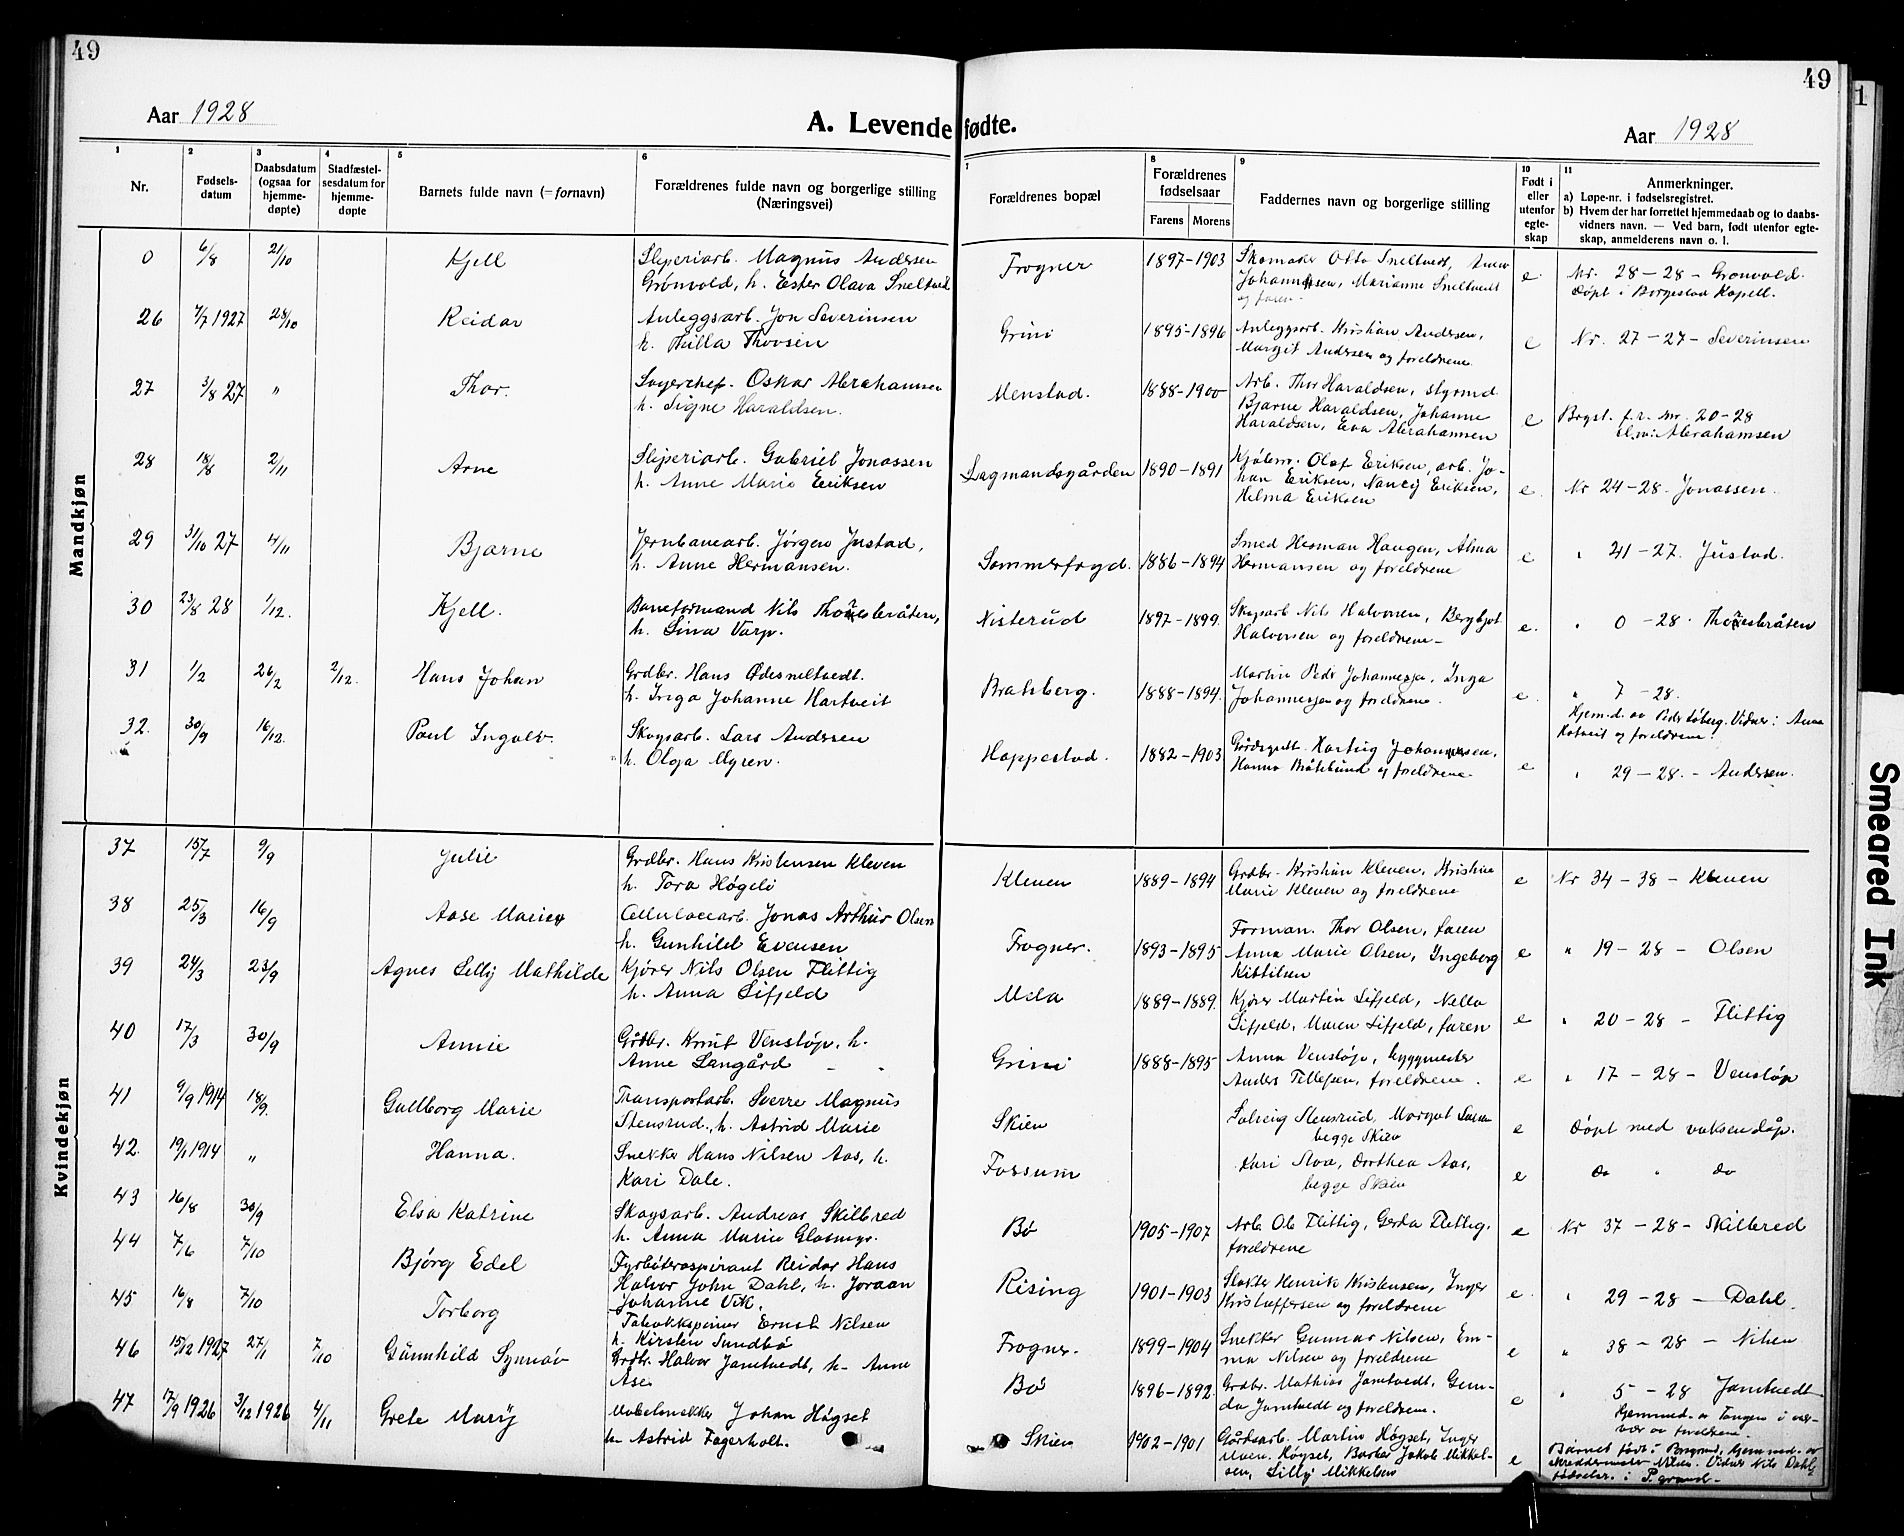 49
49
1
Aar 1928
A. Levende fødte.
Aar 1928
1
2
3
4
5
6
7
8
9
10
11
Nr.
Fødsels-
datum
Daabsdatum
(ogsaa for
hjemme-
døpte)
Stadfæstel-
sesdatum for
hjemme-
døpte
Barnets fulde navn (= fornavn)
Forældrenes fulde navn og borgerlige stilling
(Næringsvei)
Forældrenes bopæl
Forældrenes
fødselsaar
Farens Morens
Faddernes navn og borgerlige stilling
Født i
eller
utenfor
egte-
skap
Anmerkninger.
a) Løpe-nr. i fødselsregistret.
b) Hvem der har forrettet hjemmedaab og to daabs-
vidners navn. — Ved barn, født utenfor egte-
skap, anmelderens navn o. l.
Mandkjøn
0 6/8 21/10 Kjell
Sliperiarb. Magnus Andersen
Grønvold, h. Ester Olava Sneltvedt
Frogner 1897-1903
Skomaker Otto Sneltvedt,
Johannesen, Marianne Sneltvedt
og faren
e. Nr. 28-28 - Grønvold.
Døpt i Borgestad Kapell.
26 7/7 1927 28/10 Reidar
Anleggsarb. Jon Severinsen
h. Thovsen
Grini 1895-1896
Anleggsarb. Kristian Andersen,
Margit Andersen og foreldrene
e Nr. 27-27- Severinsen
27 3/8 27 " Thor.
Lagerchef. Oskar Abrahamsen
h. Signe Haraldsen.
Menstad. 1888-1900
Arb. Thor Haraldsen, styrmd.
Bjarne Haraldsen, Johanne
Haraldsen, Eva Abrahamsen
e Bogst. f.r. nr. 20-28
Abrahamsen
28 18/8 2/11 Arne
Sliperiarb. Gabriel Jonassen
h. Anne Marie Eriksen
Lagmandsgården 1890-1891
Kjøbm. Olaf Eriksen, arb. Jo-
han Eriksen, Nancy Eriksen,
Helma Eriksen
e. Nr 24-28. Jonassen.
29 31/10 27 4/11 Bjarne
Jernbanearb. Jørgen Justad,
h. Anne Hermansen.
Sommerfryd. 1886-1894
Smed Herman Haugen, Alma
Hermansen og foreldrene
e " 41-27. Justad.
30 23/8 28 1/12. Kjell.
Baneformand Nils Thoresbråten,
h. Lina Varp.
Nisterud 1897-1899.
Skogsarb Nils Halvorsen, Bergljot
Halvorsen og foreldrene -
e. " 0-28. Thoresbråten
31 1/2 26/2 2/12. Hans Johan
Grdbr. Hans Ødesneltvedt.
h. Inga Johanne Hartveit
Brakberg. 1888-1894.
Martin Peder Johannesen, Inga
Johannesen og foreldrene.
e. " 7-28.
Hjem.d. av Peder Løberg. Vidner: Anna
og foreldrene.
32. 30/9 16/12. Paul Ingolv.
Skogsarb. Lars Andersen
h. Olga Myren.
Hoppestad. 1882-1903
Gårdsgutt Hartvig Johannesen,
Hanna Bråtelund og foreldrene
e " 29-28. - Andersen.
Kvindekjøn
37 15/7 9/9 Julie
Grdbr. Hans Kristensen Kleven
h. Tora Høgeli
Kleven 1889-1894
Grdbr. Kristian Kleven, Kristine
Marie Kleven og foreldrene
e Nr 34-38 - Kleven
38 25/3 16/9 Aase Marie
Cellulosearb. Jonas Arthur Olsen
h. Gunhild Evensen
Frogner. 1893-1895
Forman. Thor Olsen, faren
Anna Marie Olsen, Ingeborg
Kittilsen
e " 19-28 - Olsen
39 24/3 23/9 Agnes Lelly Mathilde
Kjører Nils Olsen Flittig
h. Anna Lifjeld
Mela 1889-1889.
Kjører Martin Lifjeld, Nella
Lifjeld, Maren Lifjeld, faren
e " 20-28 - Flittig
40 17/3 30/9 Annie
Grdbr. Knut Venstøp, h.
Anne Langård
Grini 1888-1895
Anna Venstøp, byggmester
Anders Tellefsen, foreldrene.
e " 17-28 - Venstøp
41 9/9 1914 18/9. Gullborg Marie
Transportarb. Sverre Magnus
Stensrud, h. Astrid Marie
Skien
Solveig Stensrud, Margot
begge Skien
e Døpt med voksendåp.
42. 19/1 1914 " Hanna.
Snekker Hans Nilsen Aas, h.
Kari Dale.
Fossum
Kari Moa, Dorthea Aas,
begge Skien
e do " do
43 16/8 30/9 Elsa Katrine
Skogsarb. Andreas Skilbred
h. Anna Marie Glasmyr.
Bø 1905-1907
Arb. Ole Flittig, Gerda Flittig.
foreldrene
e Nr 37-28- Skilbred
44 7/6 7/10 Bjørg Edel
Fyrbøteraspirant Reidar Hans
Halvor John Dahl, h. Joraan
Johanne Vik.
Rising 1901-1903
Slakter Henrik Kristensen, Inger
Kristoffersen og foreldrene
e. " 29-28 - Dahl.
45 16/8 7/10 Torborg
Tobakkspinner Ernst Nilsen
h. Kirsten Sundbø
Frogner. 1899-1904
Snekker Gunnar Nilsen, Em-
ma Nilsen og foreldrene
e " 38-28 - Nilsen
46 15/12 1927 27/11 7/10 Gunnhild Synnøv
Grdbr. Halvor Jamtvedt, h. Anne
Ase
Bø 1896-1892.
Grdbr. Mathias Jamtvedt, Gun-
da Jamtvedt og foreldrene.
e " 5-28 Jamtvedt
Hjemmed. av Tangen i nær-
vær av foreldrene.
47 17/9 1926 3/12 1926 4/11 Grete Mary
Møbelsnekker Johan Høgset
h. Astrid Fagerholt.
Skien 1902-1901
Gårdsarb. Martin Høgset, Inger
Maren Høgset, Barber Jakob Mikkel-
sen, Lilly Mikkelsen
e Barnet født i Porsgrund, hjemmed. av
skreddermester Vidner Nils Dahl
fødselsr. i P.grund -
Smeared Ink